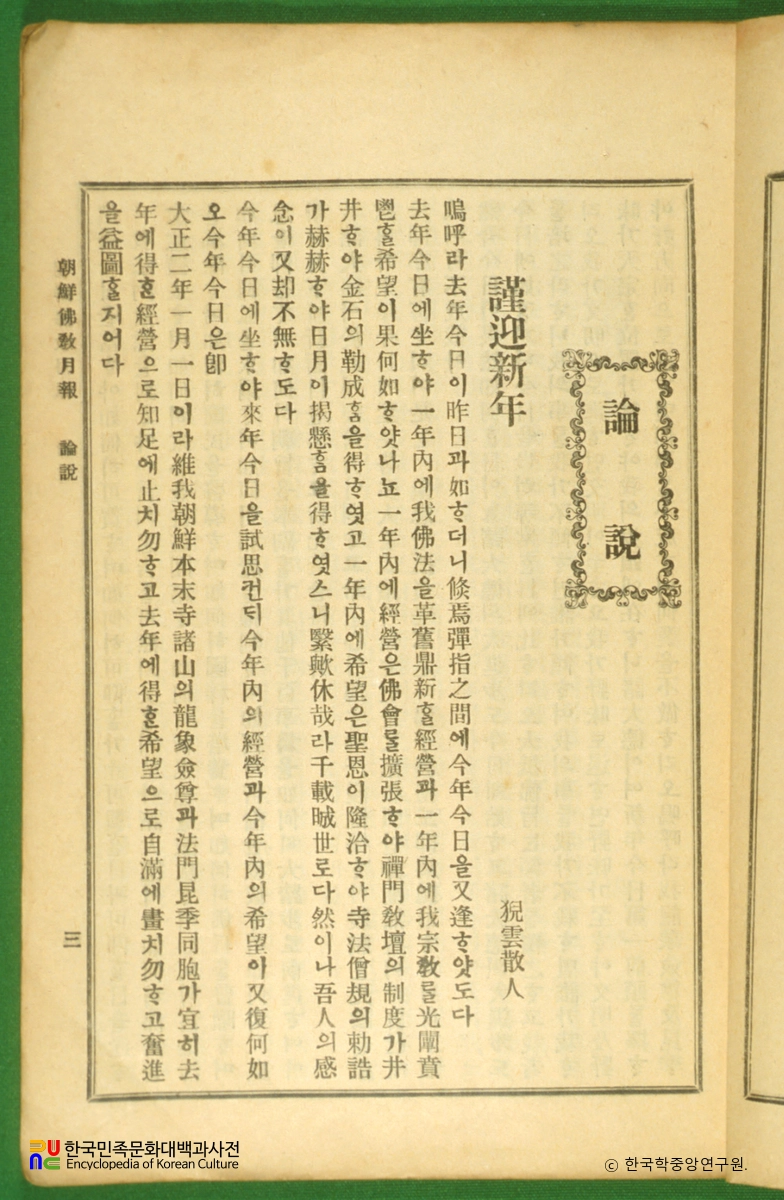 論說
謹迎新年
猊雲散人
嗚呼라去年今日이昨日과如ᄒᆞ더니倏焉彈指之間에今年今日을又逢ᄒᆞ얏도다
去年今日에坐ᄒᆞ야一年內에我佛法을革舊鼎新ᄒᆞᆯ經營과一年內에我宗敎ᄅᆞᆯ光闡賁
鬯ᄒᆞᆯ希望이果何如ᄒᆞ얏나뇨一年內에經營은佛會ᄅᆞᆯ擴張ᄒᆞ야禪門敎壇의制度가井
井ᄒᆞ야金石의勒成ᄒᆞᆷ을得ᄒᆞ엿고一年內에希望은聖恩이隆洽ᄒᆞ야寺法僧規의勅誥
가赫赫ᄒᆞ야日月이揭懸ᄒᆞᆷ을得ᄒᆞ엿스니繄歟休哉라千載晠世로다然이나吾人의感
念이又却不無ᄒᆞ도다
今年今日에坐ᄒᆞ야來年今日을試思컨ᄃᆡ今年內의經營과今年內의希望이又復何如
오今年今日은卽
大正二年一月一日이라維我朝鮮本末寺諸山의龍象僉尊과法門昆季同胞가宜히去
年에得ᄒᆞᆫ經營으로知足에止치勿ᄒᆞ고去年에得ᄒᆞᆫ希望으로自滿에畫치勿ᄒᆞ고奮進
을益圖ᄒᆞᆯ지어다
朝鮮佛敎月報 論說 三
한국민족문화대백과사전
Encyclopedia of Korean Culture
ⓒ 한국학중앙연구원.